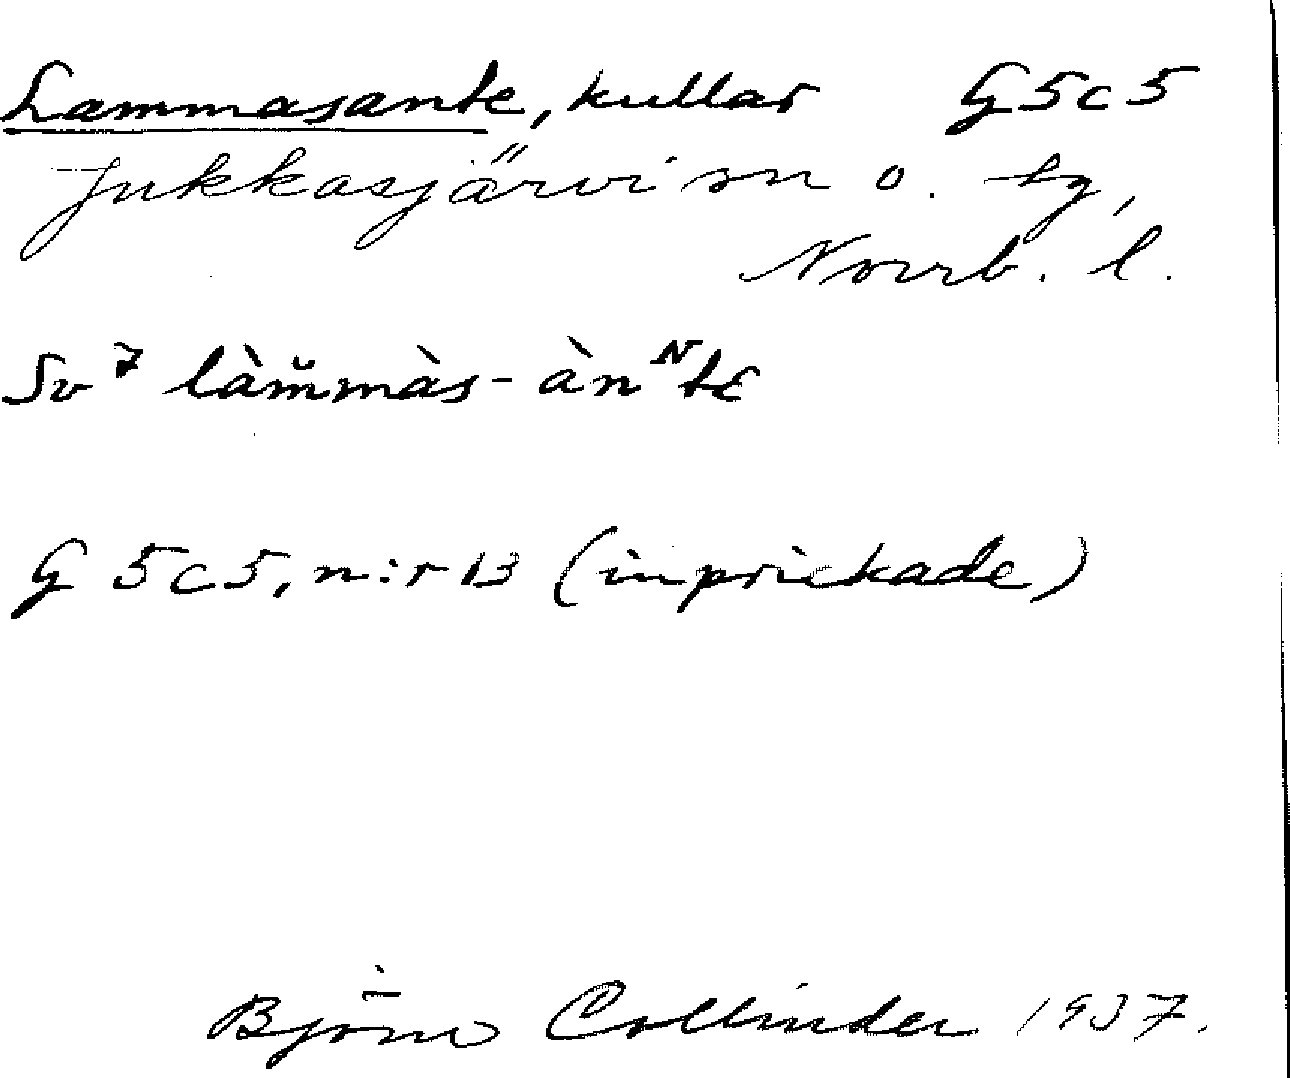 Lammasante, kullar G5c5
Jukkasjärvi sn o. tg,
Norrb. l.
Sv 7 làm̆màs-ànᴺtɛ
G 5c5, n:r 13 (inprickade)
Björn Collinder 1937.